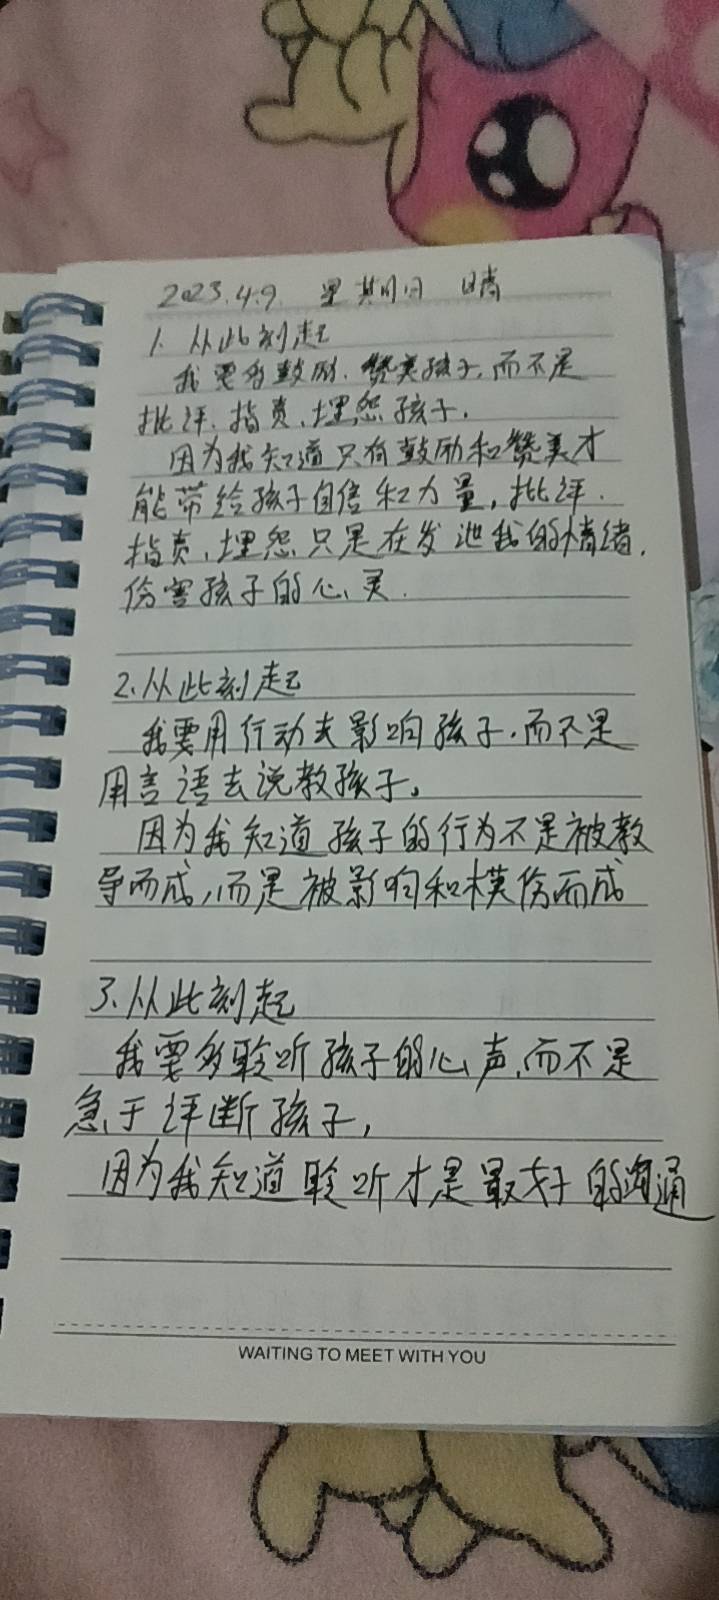 2023.4.9. 星期日 晴
1. 从此刻起
我要多鼓励、赞美孩子,而不是
批评、指责、埋怨孩子。
因为我知道只有鼓励和赞美才
能带给孩子自信和力量,批评、
指责、埋怨只是在发泄我的情绪,
伤害孩子的心灵.
2.从此刻起
我要用行动去影响孩子,而不是
用言语去说教孩子。
因为我知道孩子的行为不是被教
导而成,而是被影响和模仿而成
3.从此刻起
我要多聆听孩子的心声,而不是
急于评断孩子,
因为我知道聆听才是最好的沟通
WAITING TO MEET WITH YOU